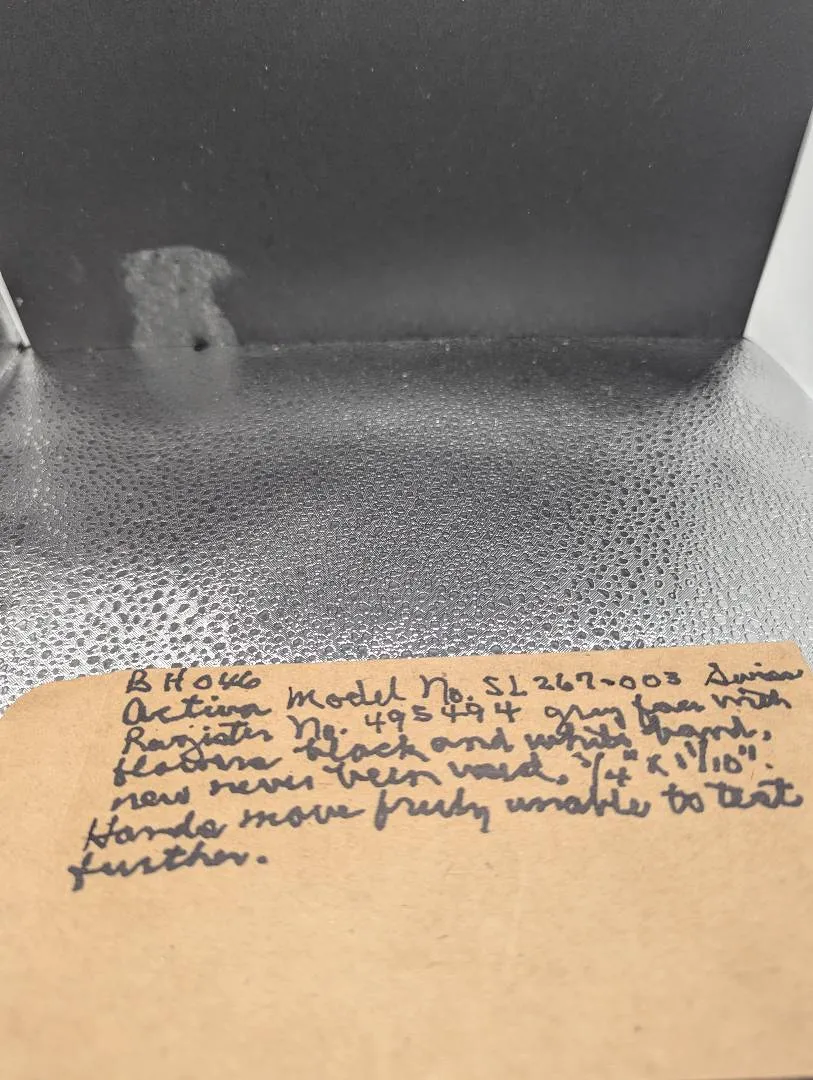 BH046
Activa Model No. SL267-003 Swiss
Register No. 495494 gray face with
flowers black and white band,
new never been used. 3/4" x 1 1/10".
Hands move freely unable to test
further.